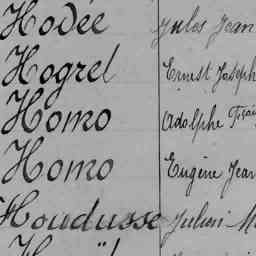 Hodée Jules Jean
Hogrel Ernest Joseph
Homo Adolphe Fçois
Homo Eugène Jean
Houdusse Julien M